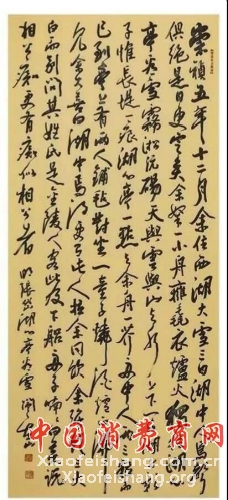 崇禎五年十二月余住西湖大雪三日湖中人鳥聲
俱絕是日更定矣余拏一小舟擁毳衣爐火獨往湖心
亭看雪霧凇沆碭天與雲與山與水上下一白湖上影
子惟長堤一痕湖心亭一點與余舟一芥舟中人兩三粒而
已到亭上有兩人鋪氈對坐一童子燒酒爐正沸
見余大喜曰湖中焉得更有此人拉余同飲余強飲三大
白而別問其姓氏是金陵人客此及下船舟子喃喃曰莫說
相公癡更有癡似相公者 明張岱湖心亭看雪
中国消费商网
Xiaofeishang.org.cn Xiaofeishang.org.cn